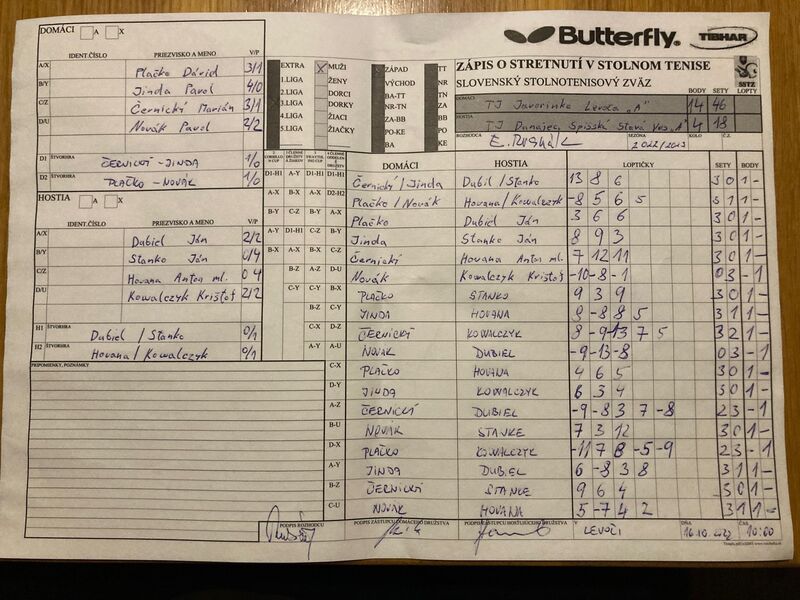 DOMÁCI A X
IDENT.ČÍSLO PRIEZVISKO A MENO V/P
A/X Plačko Dávid 3/1
B/Y Jinda Pavol 4/0
C/Z Černický Marián 3/1
D/U Novák Pavol 2/2
D1 ŠTVORHRA ČERNICKÝ - JINDA 1/0
D2 ŠTVORHRA PLAČKO - NOVÁK 1/0
HOSTIA A X
IDENT.ČÍSLO PRIEZVISKO A MENO V/P
A/X Dubiel Ján 2/2
B/Y Stanko Ján 0/4
C/Z Hovana Anton ml. 0 4
D/U Kowalczyk Krištof 2/2
H1 ŠTVORHRA Dubiel / Stanko 0/1
H2 ŠTVORHRA Hovana / Kowalczyk 0/1
PRIPOMIENKY, POZNÁMKY
EXTRA
1.LIGA
2.LIGA
3.LIGA
4.LIGA
5.LIGA
MUŽI
ŽENY
DORCI
DORKY
ŽIACI
ŽIAČKY
ZÁPAD TT
VÝCHOD NR
BA-TT TN
NR-TN ZA
ZA-BB BB
PO-KE PO
BA KE
Butterfly. TIBHAR
ZÁPIS O STRETNUTÍ V STOLNOM TENISE
SLOVENSKÝ STOLNOTENISOVÝ ZVÄZ SSTZ
DOMÁCI BODY SETY
TJ Javorinka Levoča „A" 14 46
HOSTIA
TJ Dunajec Spišská Stará Ves „A" 4 18
ROZHODCA SEZÓNA KOLO Č.Z.
2022/2023
DOMÁCI HOSTIA LOPTIČKY SETY BODY
D1-H1 A-Y D1-H1 D1-H1 Černický / Jinda Dubiel / Stanko 13 8 6 3 0 1 -
A-X B-X D2-H2 Plačko / Novák Hovana / Kowalczyk -8 5 6 5 3 1 1 -
B-Y C-Z B-Y A-X Plačko Dubiel Ján 3 6 6 3 0 1 -
A-Y D1-H1 C-Z B-Y Jinda Stanko Ján 8 9 3 3 0 1 -
B-X A-X B-X C-Z Černický Hovana Anton ml. 7 12 11 3 0 1 -
B-Z A-Z D-U Novák Kowalczyk Krištof -10 -8 -1 0 3 - 1
C-Y C-Y B-X PLAČKO STANKO 9 3 9 3 0 1 -
B-Z C-Y JINDA HOVANA 9 -8 8 5 3 1 1 -
C-X D-Z ČERNICKÝ KOWALCZYK 8 -9 -13 7 5 3 2 1 -
A-Y A-U NOVÁK DUBIEL -9 -13 -8 0 3 - 1
C-X PLAČKO HOVANA 4 6 5 3 0 1 -
D-Y JINDA KOWALCZYK 6 3 4 3 0 1 -
A-Z ČERNICKÝ DUBIEL -9 -8 3 7 -8 2 3 - 1
B-U NOVÁK STANKE 7 3 12 3 0 1 -
D-X PLAČKO KOWALCZYK -11 7 8 -5 -9 2 3 - 1
A-Y JINDA DUBIEL 6 -8 3 8 3 1 1 -
B-Z ČERNICKÝ STANKE 9 6 4 3 0 1 -
C-U NOVÁK HOVANA 5 -7 4 2 3 1 1 -
PODPIS ROZHODCU PODPIS ZÁSTUPCU DOMÁCEHO DRUŽSTVA PODPIS ZÁSTUPCU HOSŤUJÚCEHO DRUŽSTVA V LEVOČI DŇA 16.10.2022 ČAS 10:00